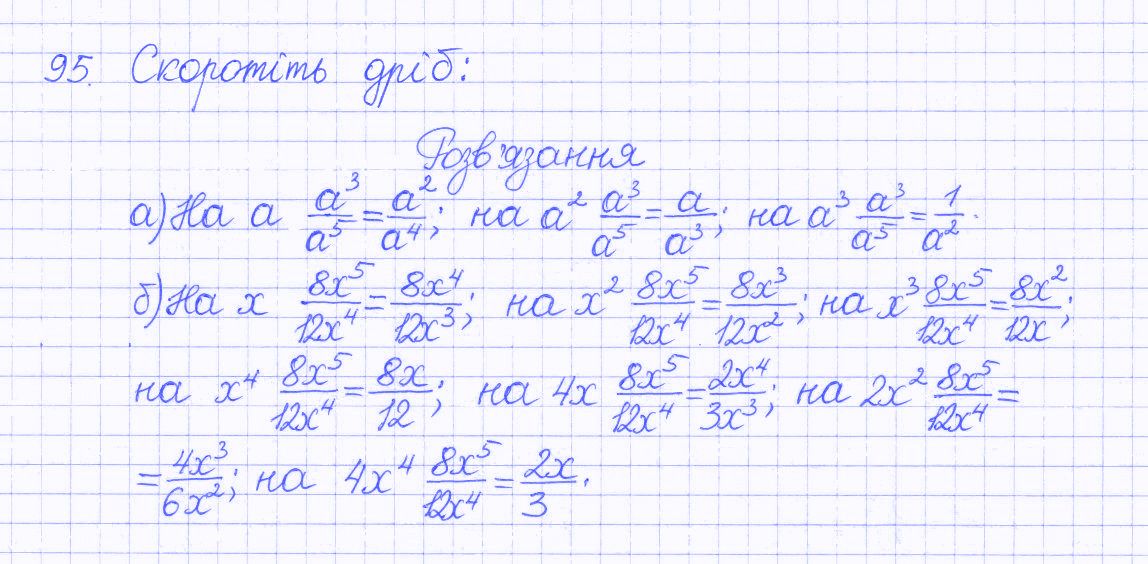 95. Скоротіть дріб:
Розв'язання
а) На a a³/a⁵ = a²/a⁴; на a² a³/a⁵ = a/a³; на a³ a³/a⁵ = 1/a².
б) На x 8x⁵/12x⁴ = 8x⁴/12x³; на x² 8x⁵/12x⁴ = 8x³/12x²; на x³ 8x⁵/12x⁴ = 8x²/12x;
на x⁴ 8x⁵/12x⁴ = 8x/12; на 4x 8x⁵/12x⁴ = 2x⁴/3x³; на 2x² 8x⁵/12x⁴ =
= 4x³/6x²; на 4x⁴ 8x⁵/12x⁴ = 2x/3.